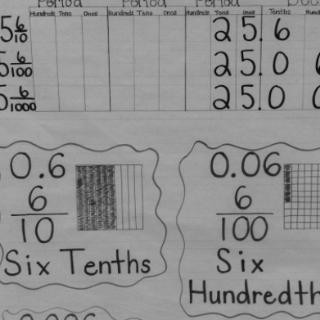 Period Period Period
Hundreds Tens Ones Hundreds Tens Ones Hundreds Tens Ones Tenths
5 6/10 25.6
5 6/100 25.0
5 6/1000 25.0
0.6 0.06
6/10 6/100
Six Tenths Six
Hundredth